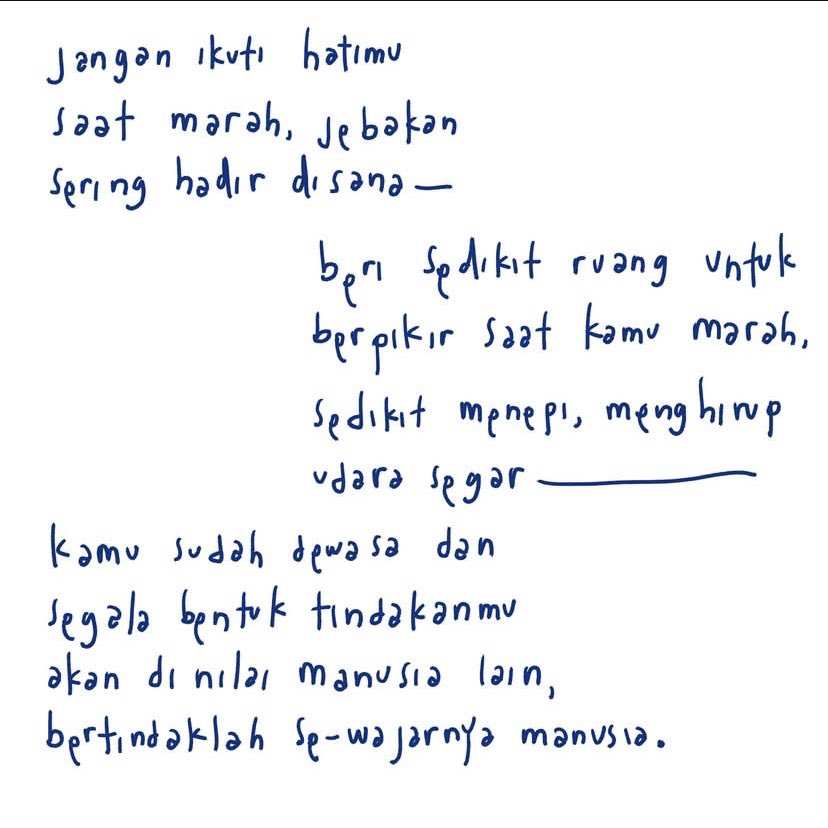 jangan ikuti hatimu
saat marah, jebakan
sering hadir disana —
beri sedikit ruang untuk
berpikir saat kamu marah,
sedikit menepi, menghirup
udara segar —
kamu sudah dewasa dan
segala bentuk tindakanmu
akan di nilai manusia lain,
bertindaklah se-wajarnya manusia.